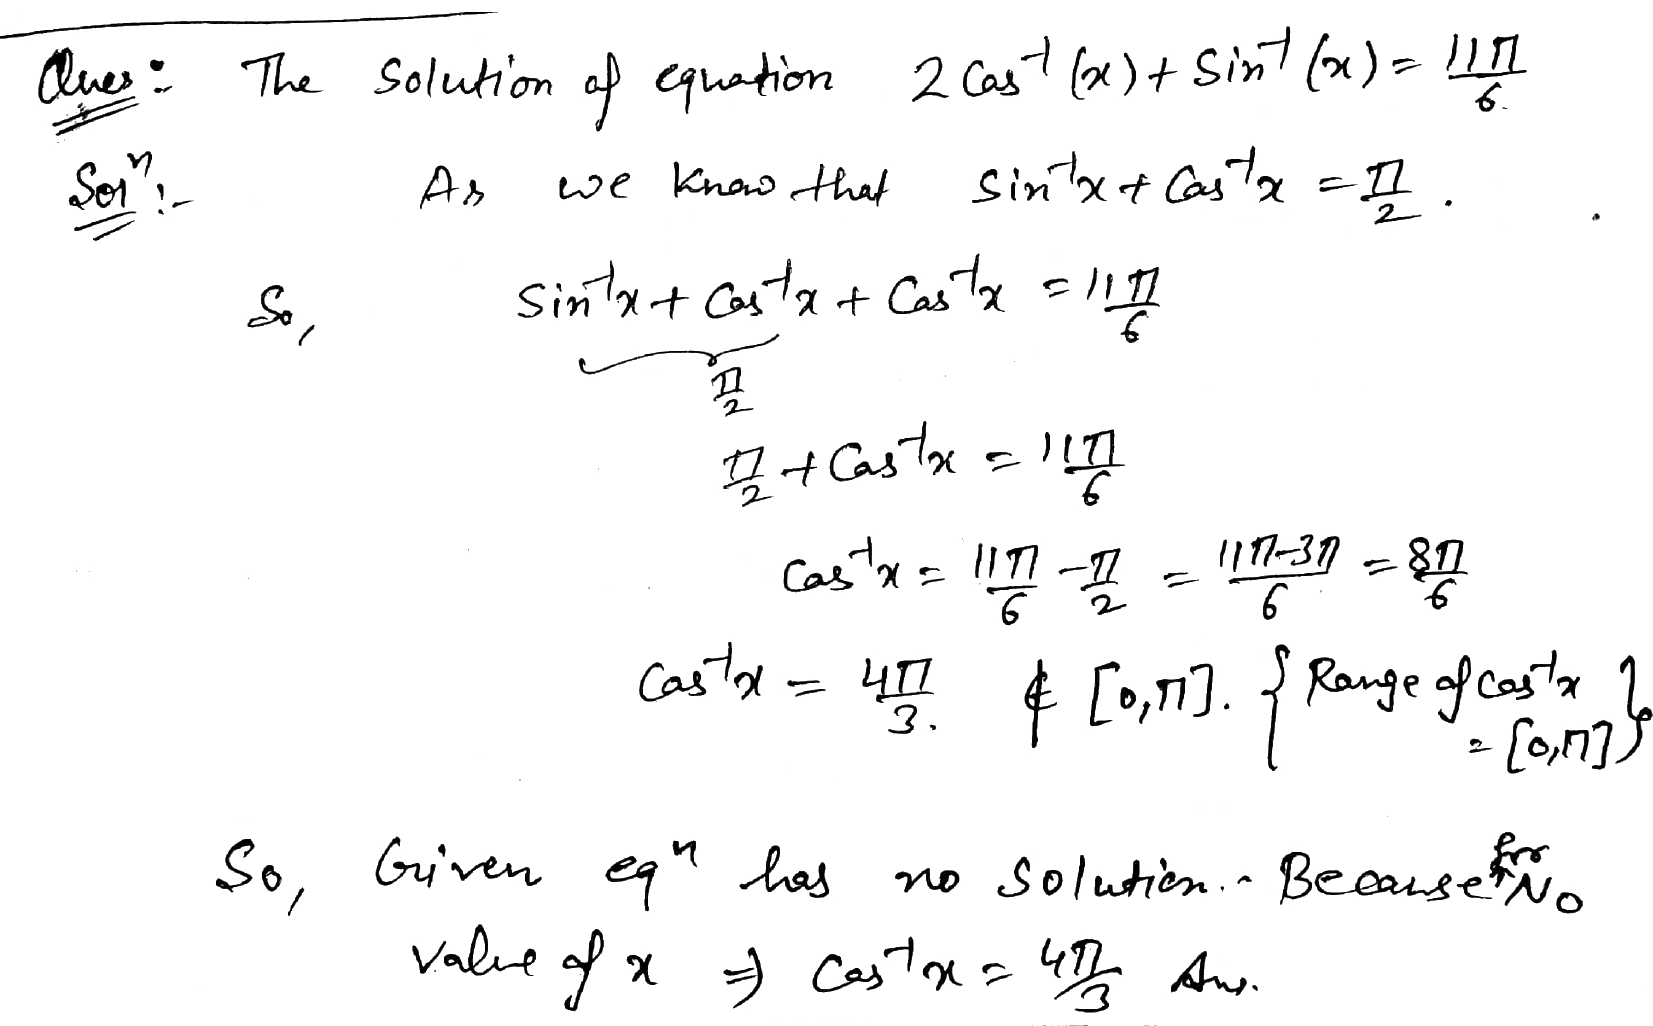 Ques: The solution of equation 2 Cos⁻¹(x) + Sin⁻¹(x) = 11π/6.
Solⁿ:- As we know that Sin⁻¹x + Cos⁻¹x = π/2.
So, Sin⁻¹x + Cos⁻¹x + Cos⁻¹x = 11π/6
π/2
π/2 + Cos⁻¹x = 11π/6
Cos⁻¹x = 11π/6 - π/2 = 11π-3π/6 = 8π/6
Cos⁻¹x = 4π/3. ∉ [0,π]. {Range of Cos⁻¹x = [0,π]}
So, Given eqⁿ has no solution. Because for No
value of x ⇒ Cos⁻¹x = 4π/3 Ans.